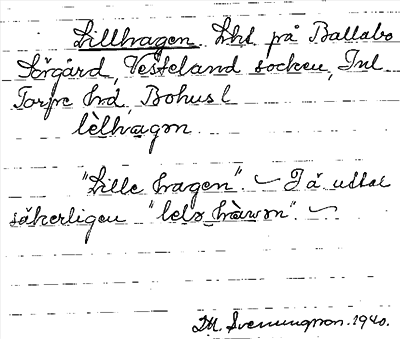 Lillhagen. Lht på Ballabo
Sörgård, Västerland socken, Inl
Torpe hd, Bohusl
lèlhagən
"Lille hagen". Få uttal
säkerligen "lelə hàwən".
M. Svenungsson. 1940.